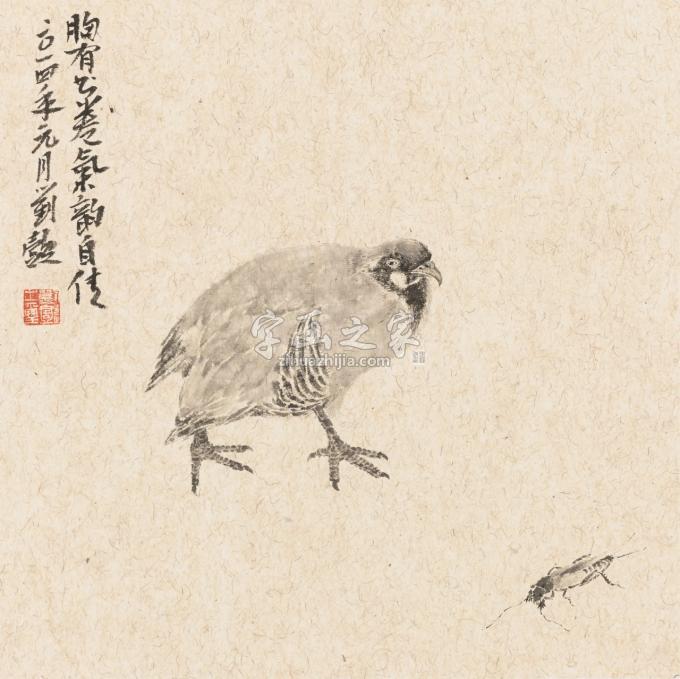 胸有书卷氣韵自佳
二〇一四年元月劉
字画之家
zihuazhijia.com